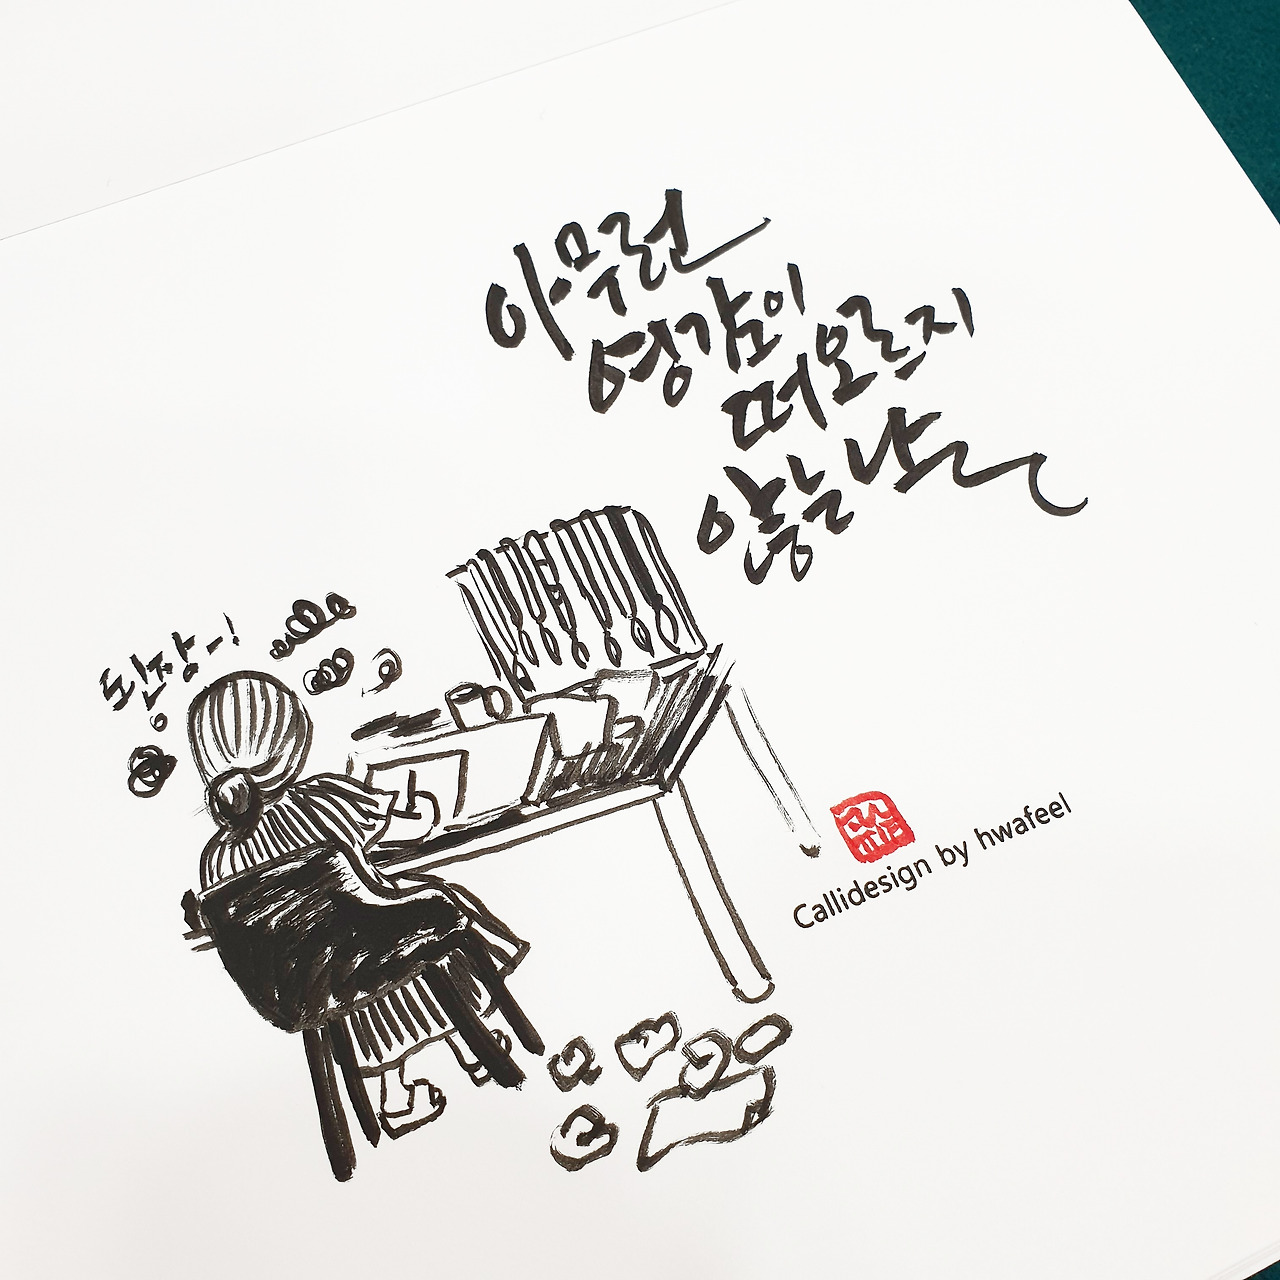 아무런
영감이
떠오르지
않는 날~
된장~!
Callidesign by hwafeel